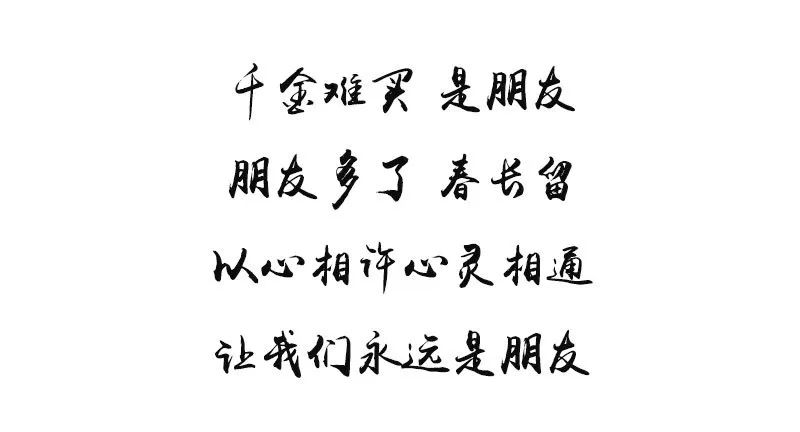 千金难买 是朋友
朋友多了 春长留
以心相许心灵相通
让我们永远是朋友